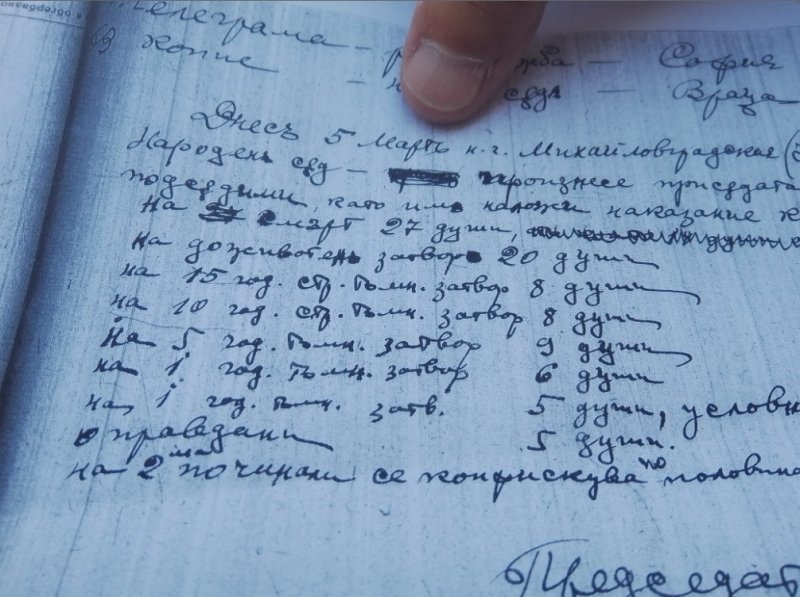 Телеграма — жба — София
В копие — — Враца
Днесъ 5 Мартъ н.г. Михайловградския
Народенъ сѫд — произнесе присѫдата
подсѫдими, като имъ наложи наказание
на смърт 27 души,
на доживотенъ затвор 20 души
на 15 год. стр. тъмн. затвор 8 души
на 10 год. стр. тъмн. затвор 8 души
на 5 год. тъмн. затвор 9 души
на 1 год. тъмн. затвор 6 души
на 1 год. тъмн. затв. 5 души, условн
оправдани 5 души.
на 2ма починали се конфискува по половина
Председат